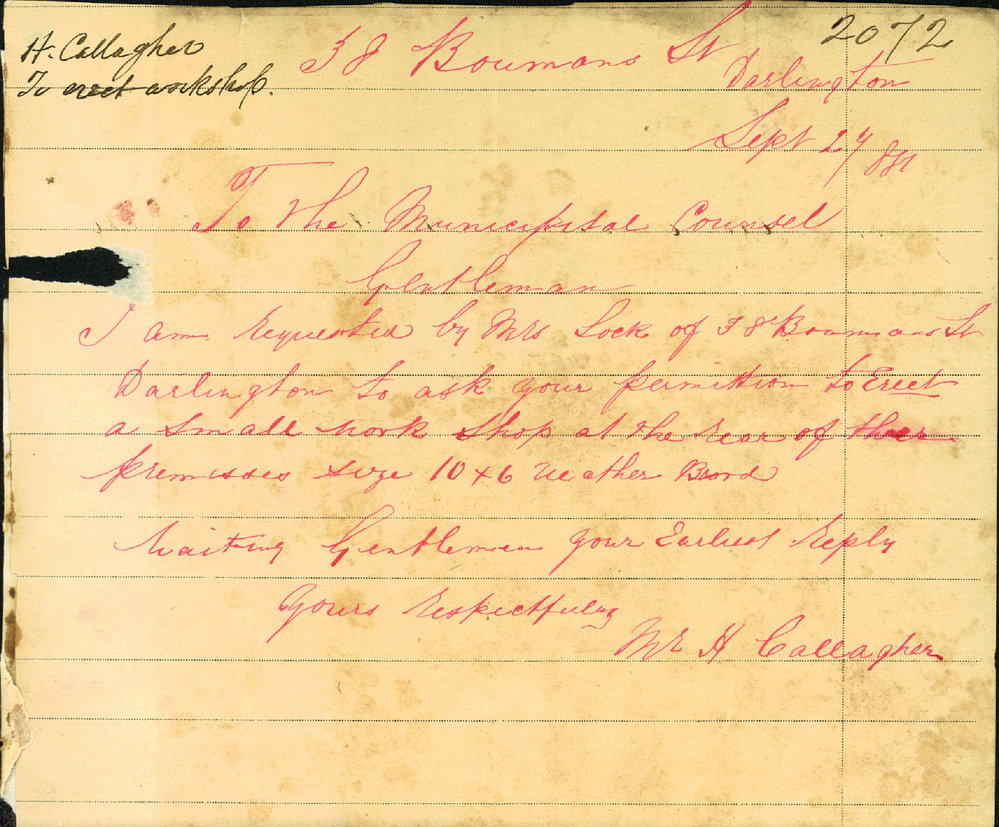 H. Callagher
To erect workshop.
2072
38 Boumans St
Darlington
Sept 27
To the Municipal Counsel
Gentleman
I am requested by Mrs Lock of 38 Boumans St
Darlington to ask your permittion to Erect
a small work shop at the rear of ther
premisses size 10 x 6 weather Bord
Waiting Gentlemen your Earliest Reply
Yours Respectfuly
Mr H Callagher